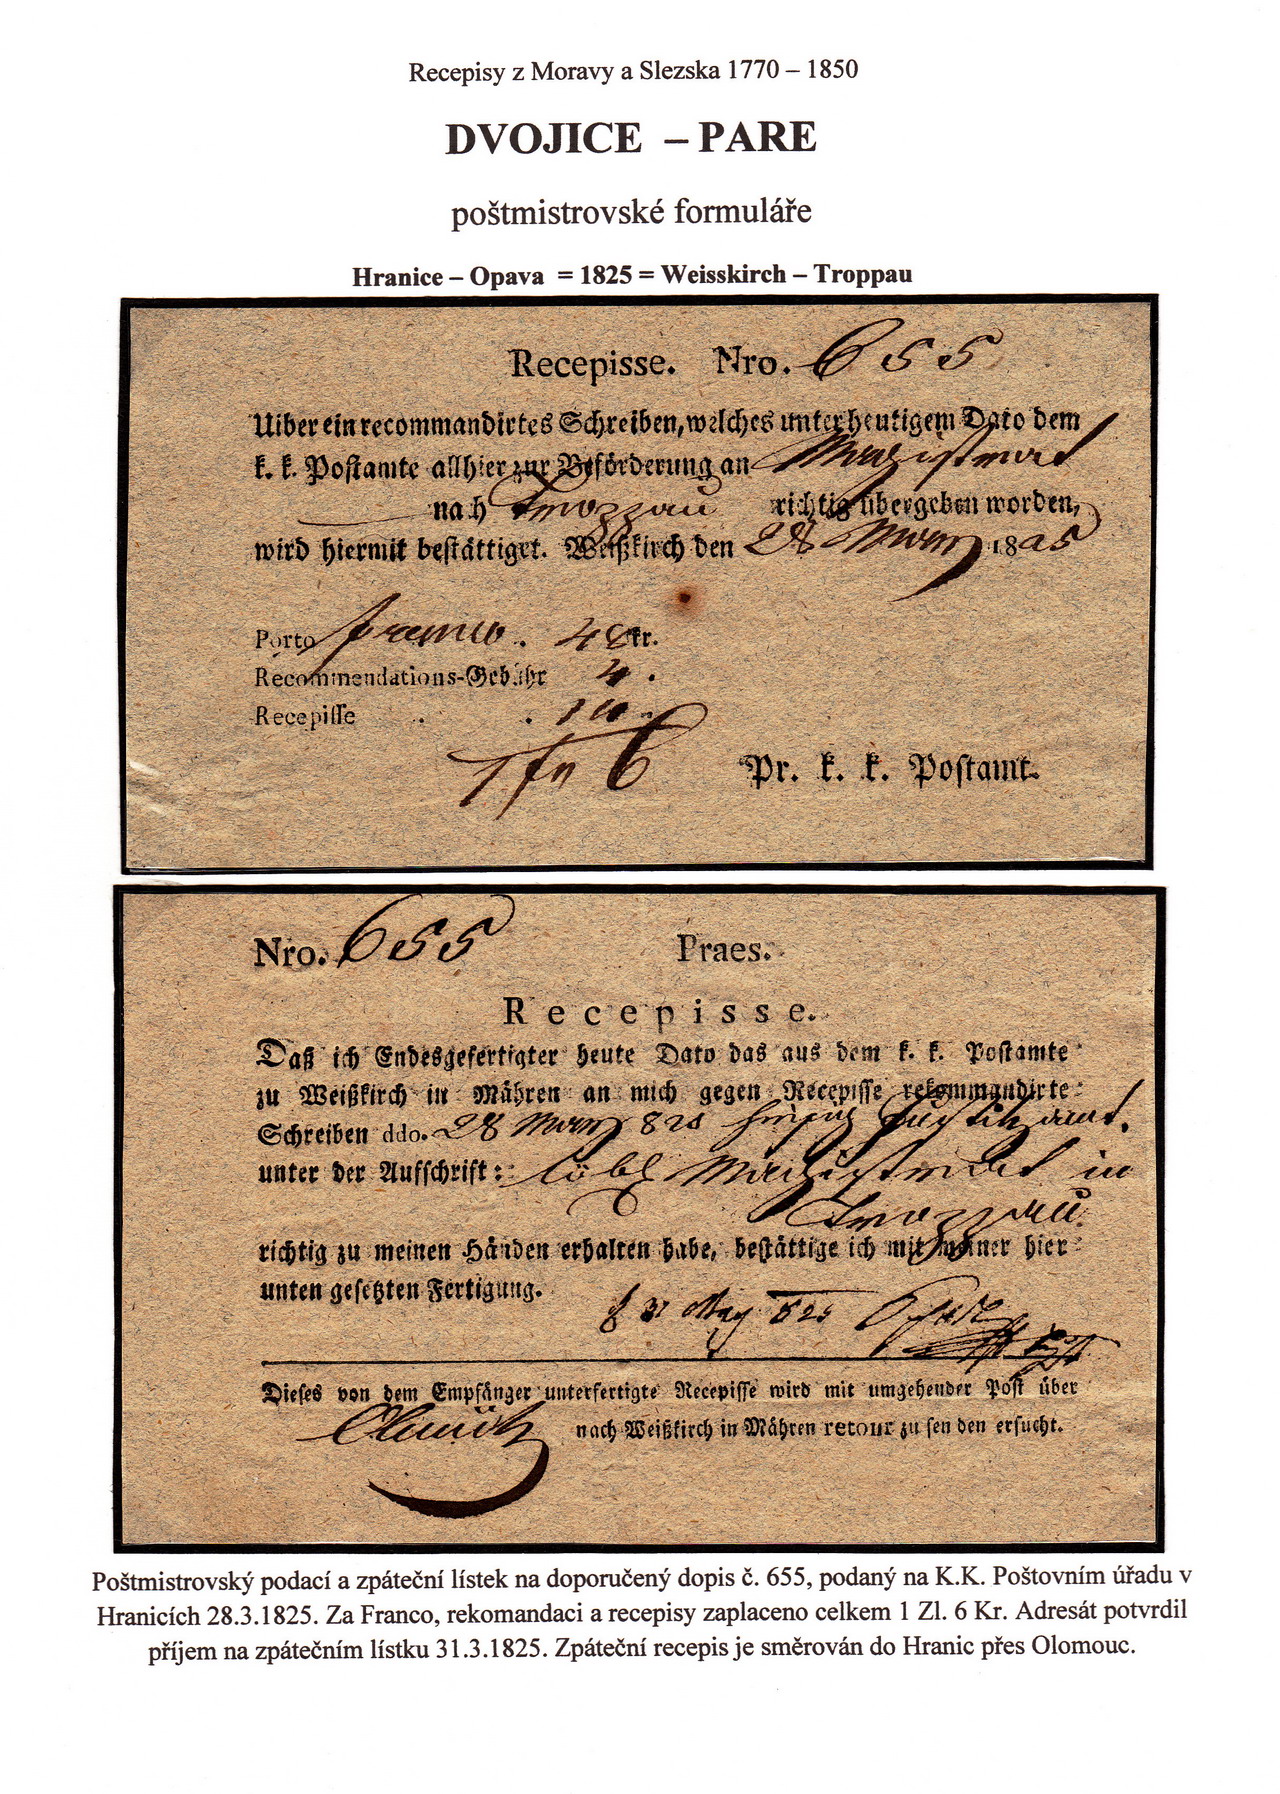 Recepisy z Moravy a Slezska 1770 – 1850
DVOJICE – PARE
poštmistrovské formuláře
Hranice – Opava = 1825 = Weisskirch – Troppau
Recepisse. Nro. 655
Uiber ein recommandirtes Schreiben, welches unter heutigem Dato dem
k. k. Postamte allhier zur Beförderung an Magistrat
nach Troppau richtig übergeben worden,
wird hiermit bestättiget. Weißkirch den 28 März 1825
Porto franco . 48 kr.
Recommendations-Gebühr 4 .
Recepisse . . 14 .
1 fr 6
Pr. k. k. Postamt.
Nro. 655 Praes.
Recepisse.
Daß ich Endesgefertigter heute Dato das aus dem k. k. Postamte
zu Weißkirch in Mähren an mich gegen Recepisse rekommandirte
Schreiben ddo. 28 März 825
unter der Aufschrift: löbl Magistrat in
Troppau
richtig zu meinen Händen erhalten habe, bestättige ich mit meiner hier
unten gesetzten Fertigung.
31 825
Dieses von dem Empfänger unterfertigte Recepisse wird mit umgehender Post über
Olmütz nach Weißkirch in Mähren retour zu sen den ersucht.
Poštmistrovský podací a zpáteční lístek na doporučený dopis č. 655, podaný na K.K. Poštovním úřadu v
Hranicích 28.3.1825. Za Franco, rekomandaci a recepisy zaplaceno celkem 1 Zl. 6 Kr. Adresát potvrdil
příjem na zpátečním lístku 31.3.1825. Zpáteční recepis je směrován do Hranic přes Olomouc.